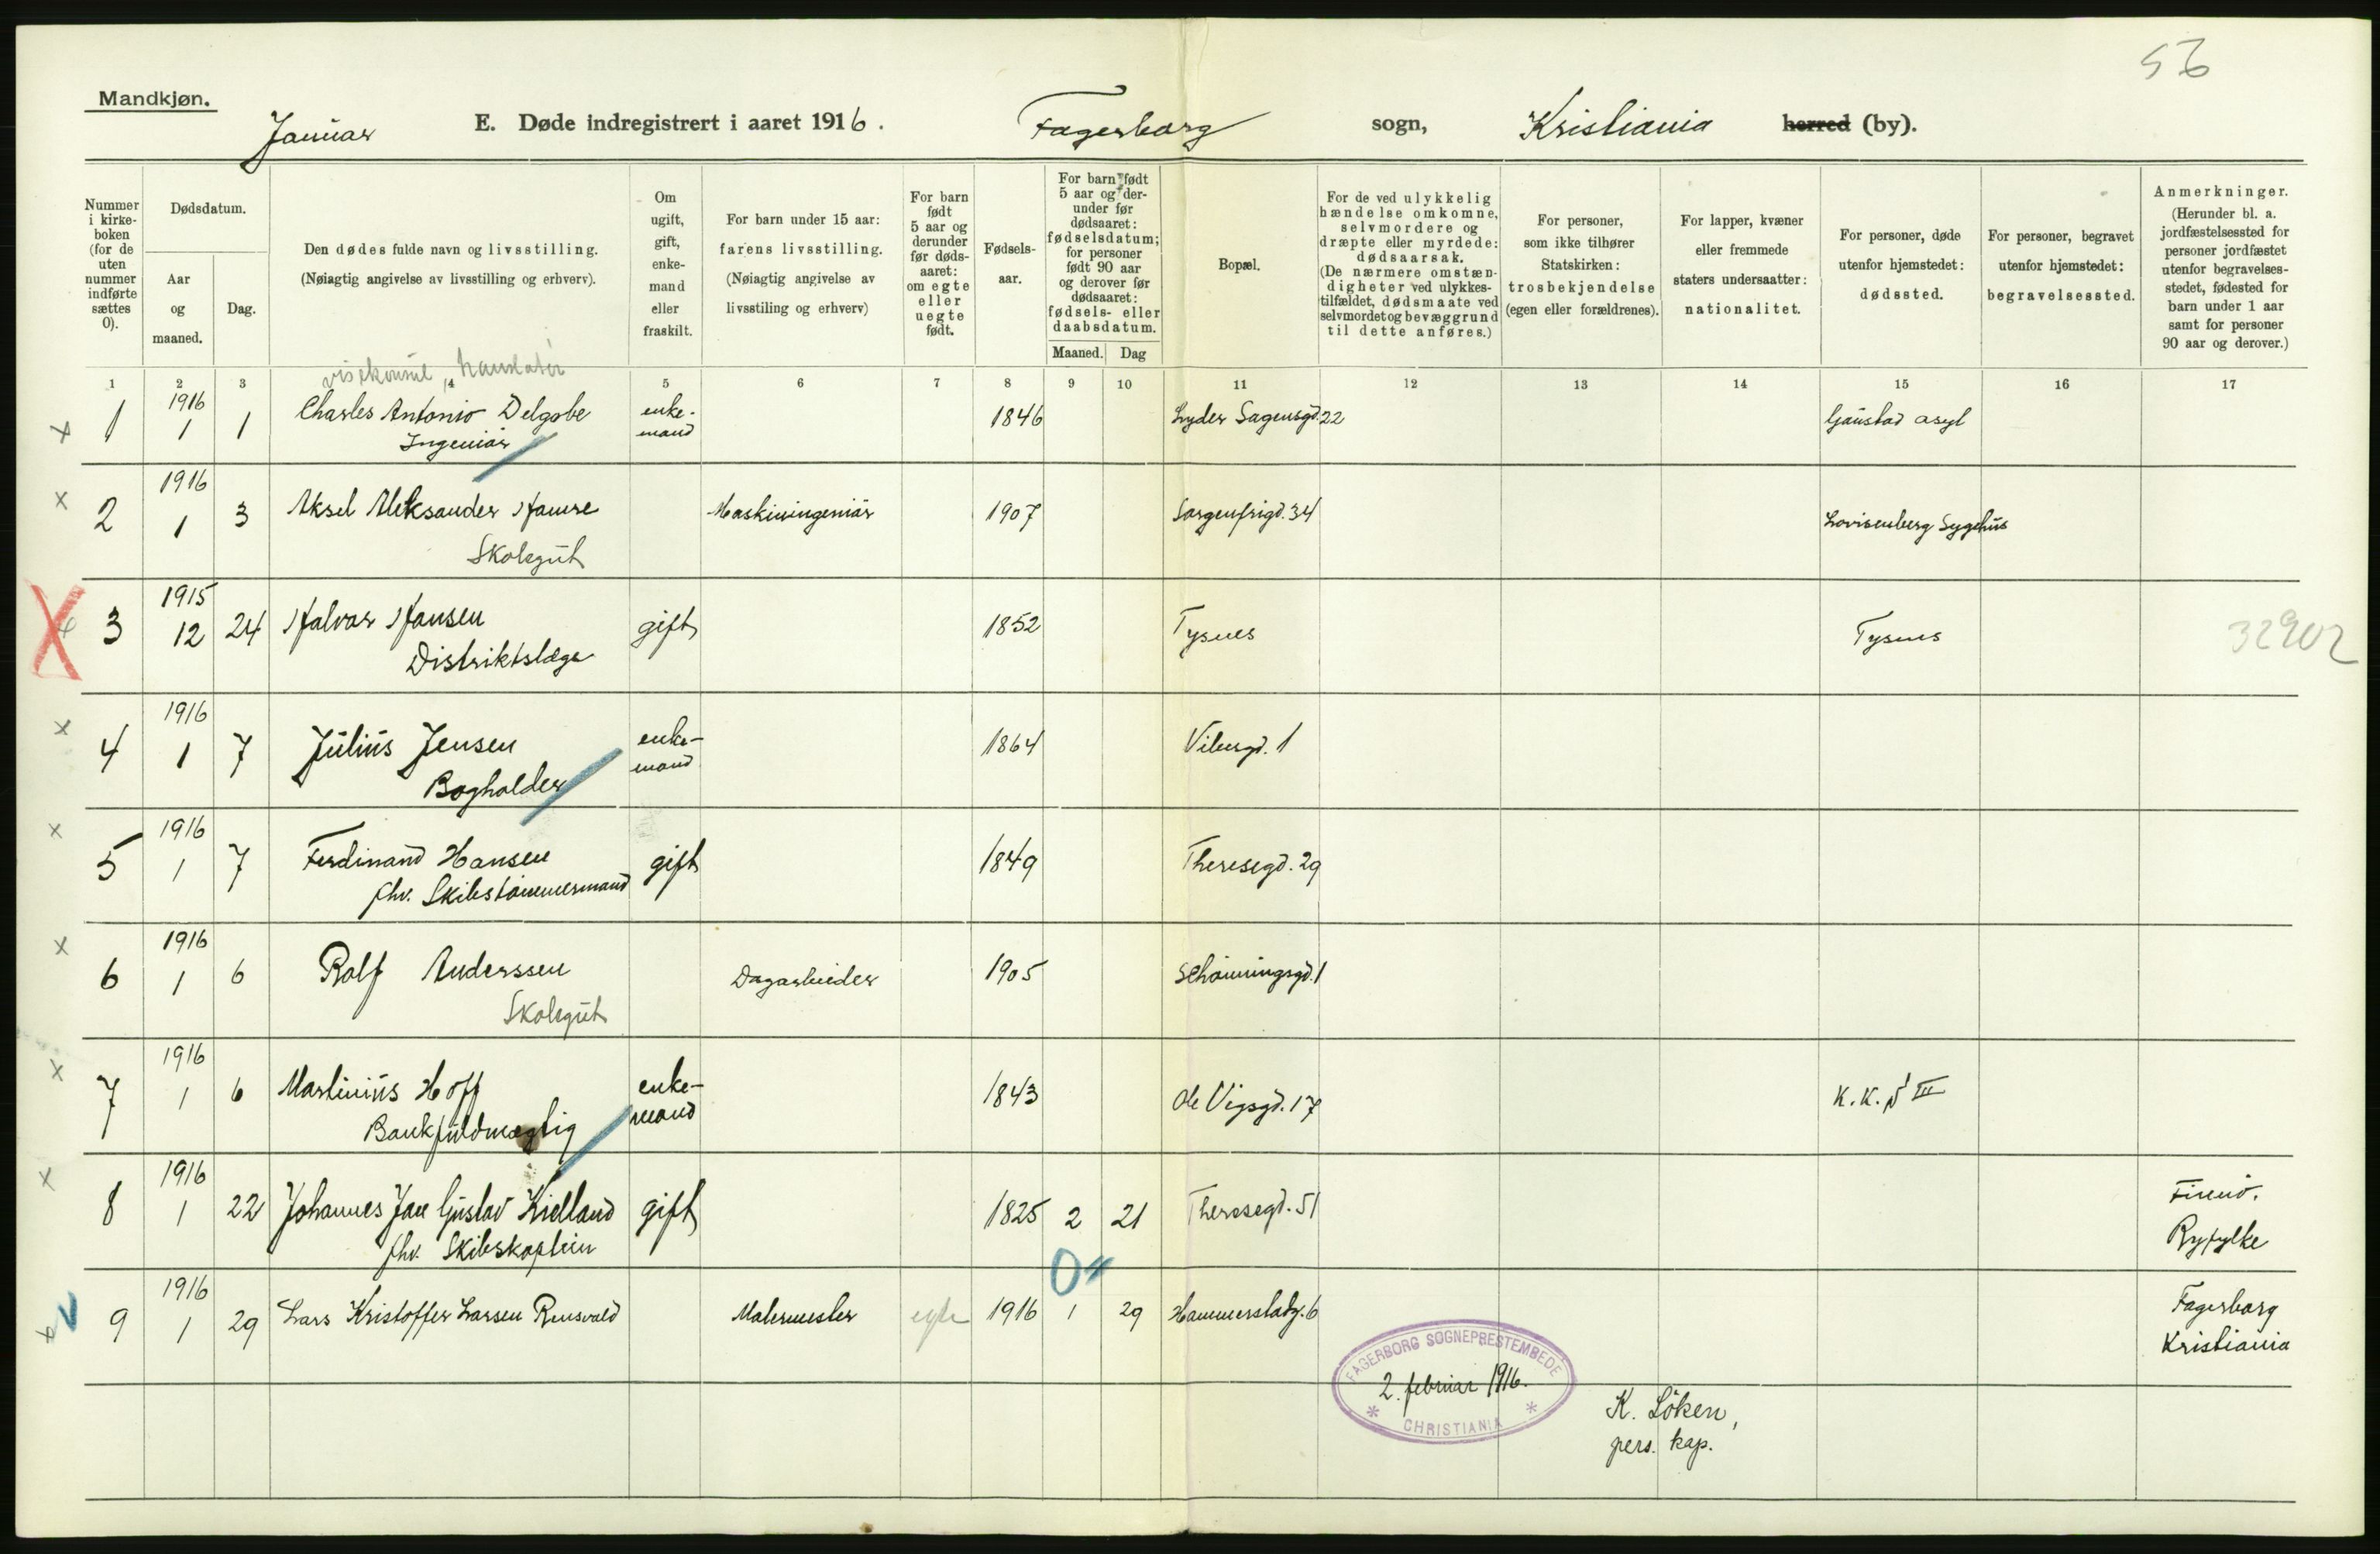 56
Mandkjøn.
Januar E. Døde indregistrert i aaret 1916. Fagerborg sogn, Kristiania herred (by).
Nummer i kirke-boken (for de uten nummer indførte sættes 0).
Dødsdatum.
Aar og maaned.
Dag.
Den dødes fulde navn og livsstilling.
(Nøiagtig angivelse av livsstilling og erhverv).
Om ugift, gift, enke-mand eller fraskilt.
For barn under 15 aar:
farens livsstilling.
(Nøiagtig angivelse av livsstiling og erhverv)
For barn født 5 aar og derunder før døds-aaret: om egte eller uegte født.
Fødsels-aar.
For barn født 5 aar og der-under før dødsaaret: fødselsdatum; for personer født 90 aar og derover før dødsaaret: fødsels- eller daabsdatum.
Maaned. Dag
Bopæl.
For de ved ulykkelig hændelse omkomne, selvmordere og dræpte eller myrdede: dødsaarsak.
(De nærmere omstæn-digheter ved ulykkes-tilfældet, dødsmaate ved selvmordet og bevæggrund til dette anføres.)
For personer, som ikke tilhører Statskirken: trosbekjendelse (egen eller forældrenes).
For lapper, kvæner eller fremmede staters undersaatter: nationalitet.
For personer, døde utenfor hjemstedet: dødssted.
For personer, begravet utenfor hjemstedet: begravelsessted.
Anmerkninger.
(Herunder bl. a. jordfæstelsessted for personer jordfæstet utenfor begravelses-stedet, fødested for barn under 1 aar samt for personer 90 aar og derover.)
1 2 3 4 5 6 7 8 9 10 11 12 13 14 15 16 17
visekonsul, translatør
x 1 1916 1 1 Charles Antonio Delgobe enke-mand 1846 Lyder Sagensgd. 22 Gaustad asyl
Ingeniør
x 2 1916 1 3 Aksel Aleksander Hamre Maskiningeniør 1907 Sorgenfrigd. 34 Lovisenberg Sygehus
Skolegut
x 3 1915 12 24 Halvar Hansen gift 1852 Tysnes Tysnes 32902
Distriktslæge
x 4 1916 1 7 Julius Jensen enke-mand 1864 Vibesgd. 1
Bogholder
x 5 1916 1 7 Ferdinand Hansen gift 1849 Theresegd. 29
fhv. Skibstømmermand
x 6 1916 1 6 Rolf Anderssen Dagarbeider 1905 Schønningsgd. 1
Skolegut
x 7 1916 1 6 Martinius Hoff enke-mand 1843 Ole Vigsgd. 17 K. K. S III
Bankfuldmægtig
x 8 1916 1 22 Johannes Jan Gustav Kielland gift 1825 2 21 Theresegd. 51 Finnø.
fhv. Skibskaptein Ryfylke
x 9 1916 1 29 Lars Kristoffer Larsen Rensvold Malermester egte 1916 1 29 Hammerstadg. 6 Fagerborg
Kristiania
FAGERBORG SOGNEPRESTEMBEDE
2. februar 1916.
* CHRISTIANIA *
K. Löken,
pers. kap.